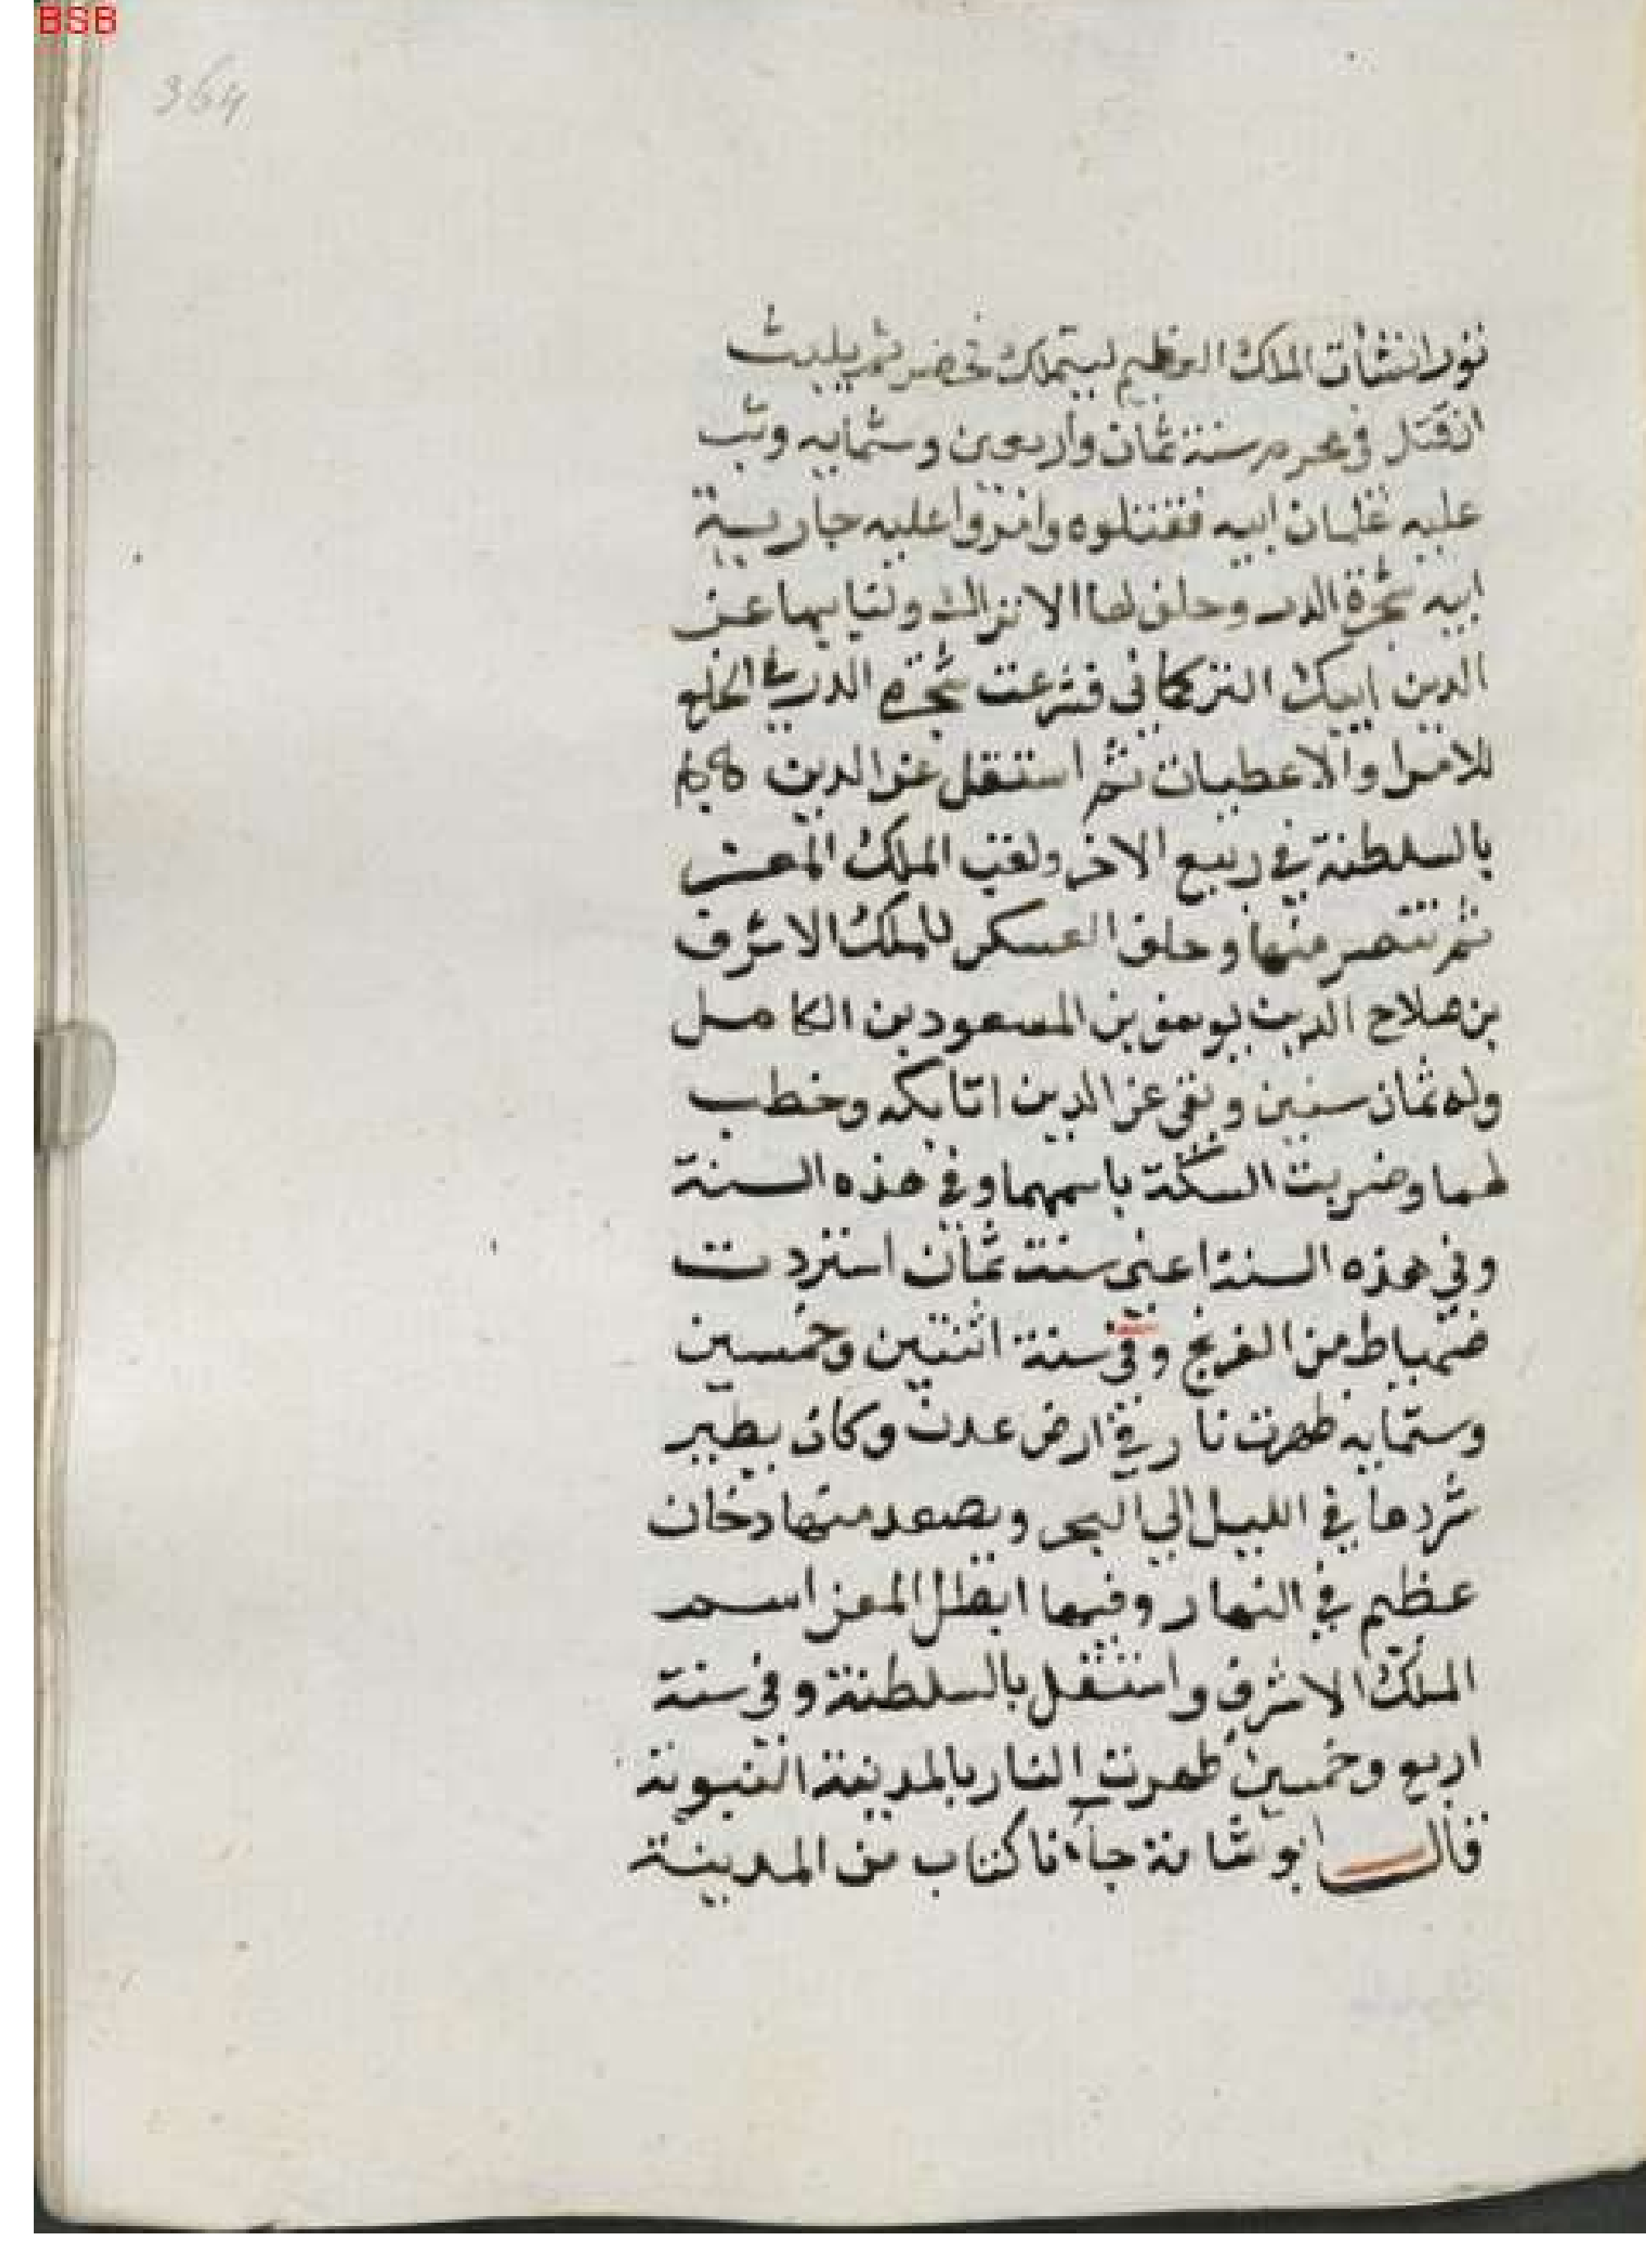 BSB
364
نورانشأت الملك المعظم ليتملك فحضر ثم يلبث
ان قتل في محرم سنة ثمان وأربعين وستمايه وثب
عليه غلمان ابيه فقتلوه وامروا عليه جارية
ابيه شجرة الدر وحلف لها الاتراك ولنايبها عز
الدين ايبك التركماني فشرعت شجرة الدر في الخلع
للامرا والاعطيات ثم استقل عز الدين
بالسلطنة في ربيع الاخر ولقب الملك المعز
ثم تنصر منها وحلف العسكر للملك الاشرف
بن صلاح الدين يوسف بن المسعود بن الكامل
وله ثمان سنين وبقى عز الدين اتابكه وخطب
لهما وضربت السكة باسمهما وفي هذه السنة
وفي هذه السنة اعنى سنت ثمان استردت
ضمياط من الفرنج وفي سنة اثنتين وخمسين
وستمايه ظهرت نار في ارض عدن وكان يطير
شردها في الليل الي البحر ويصعد منها دخان
عظيم في النهار وفيها ابطل المعز اسم
الملك الاشرف واستقل بالسلطنة وفي سنة
اربع وخمسين ظهرت النار بالمدينة النبوية
قال ابو شامة جاءنا كتاب من المدينة